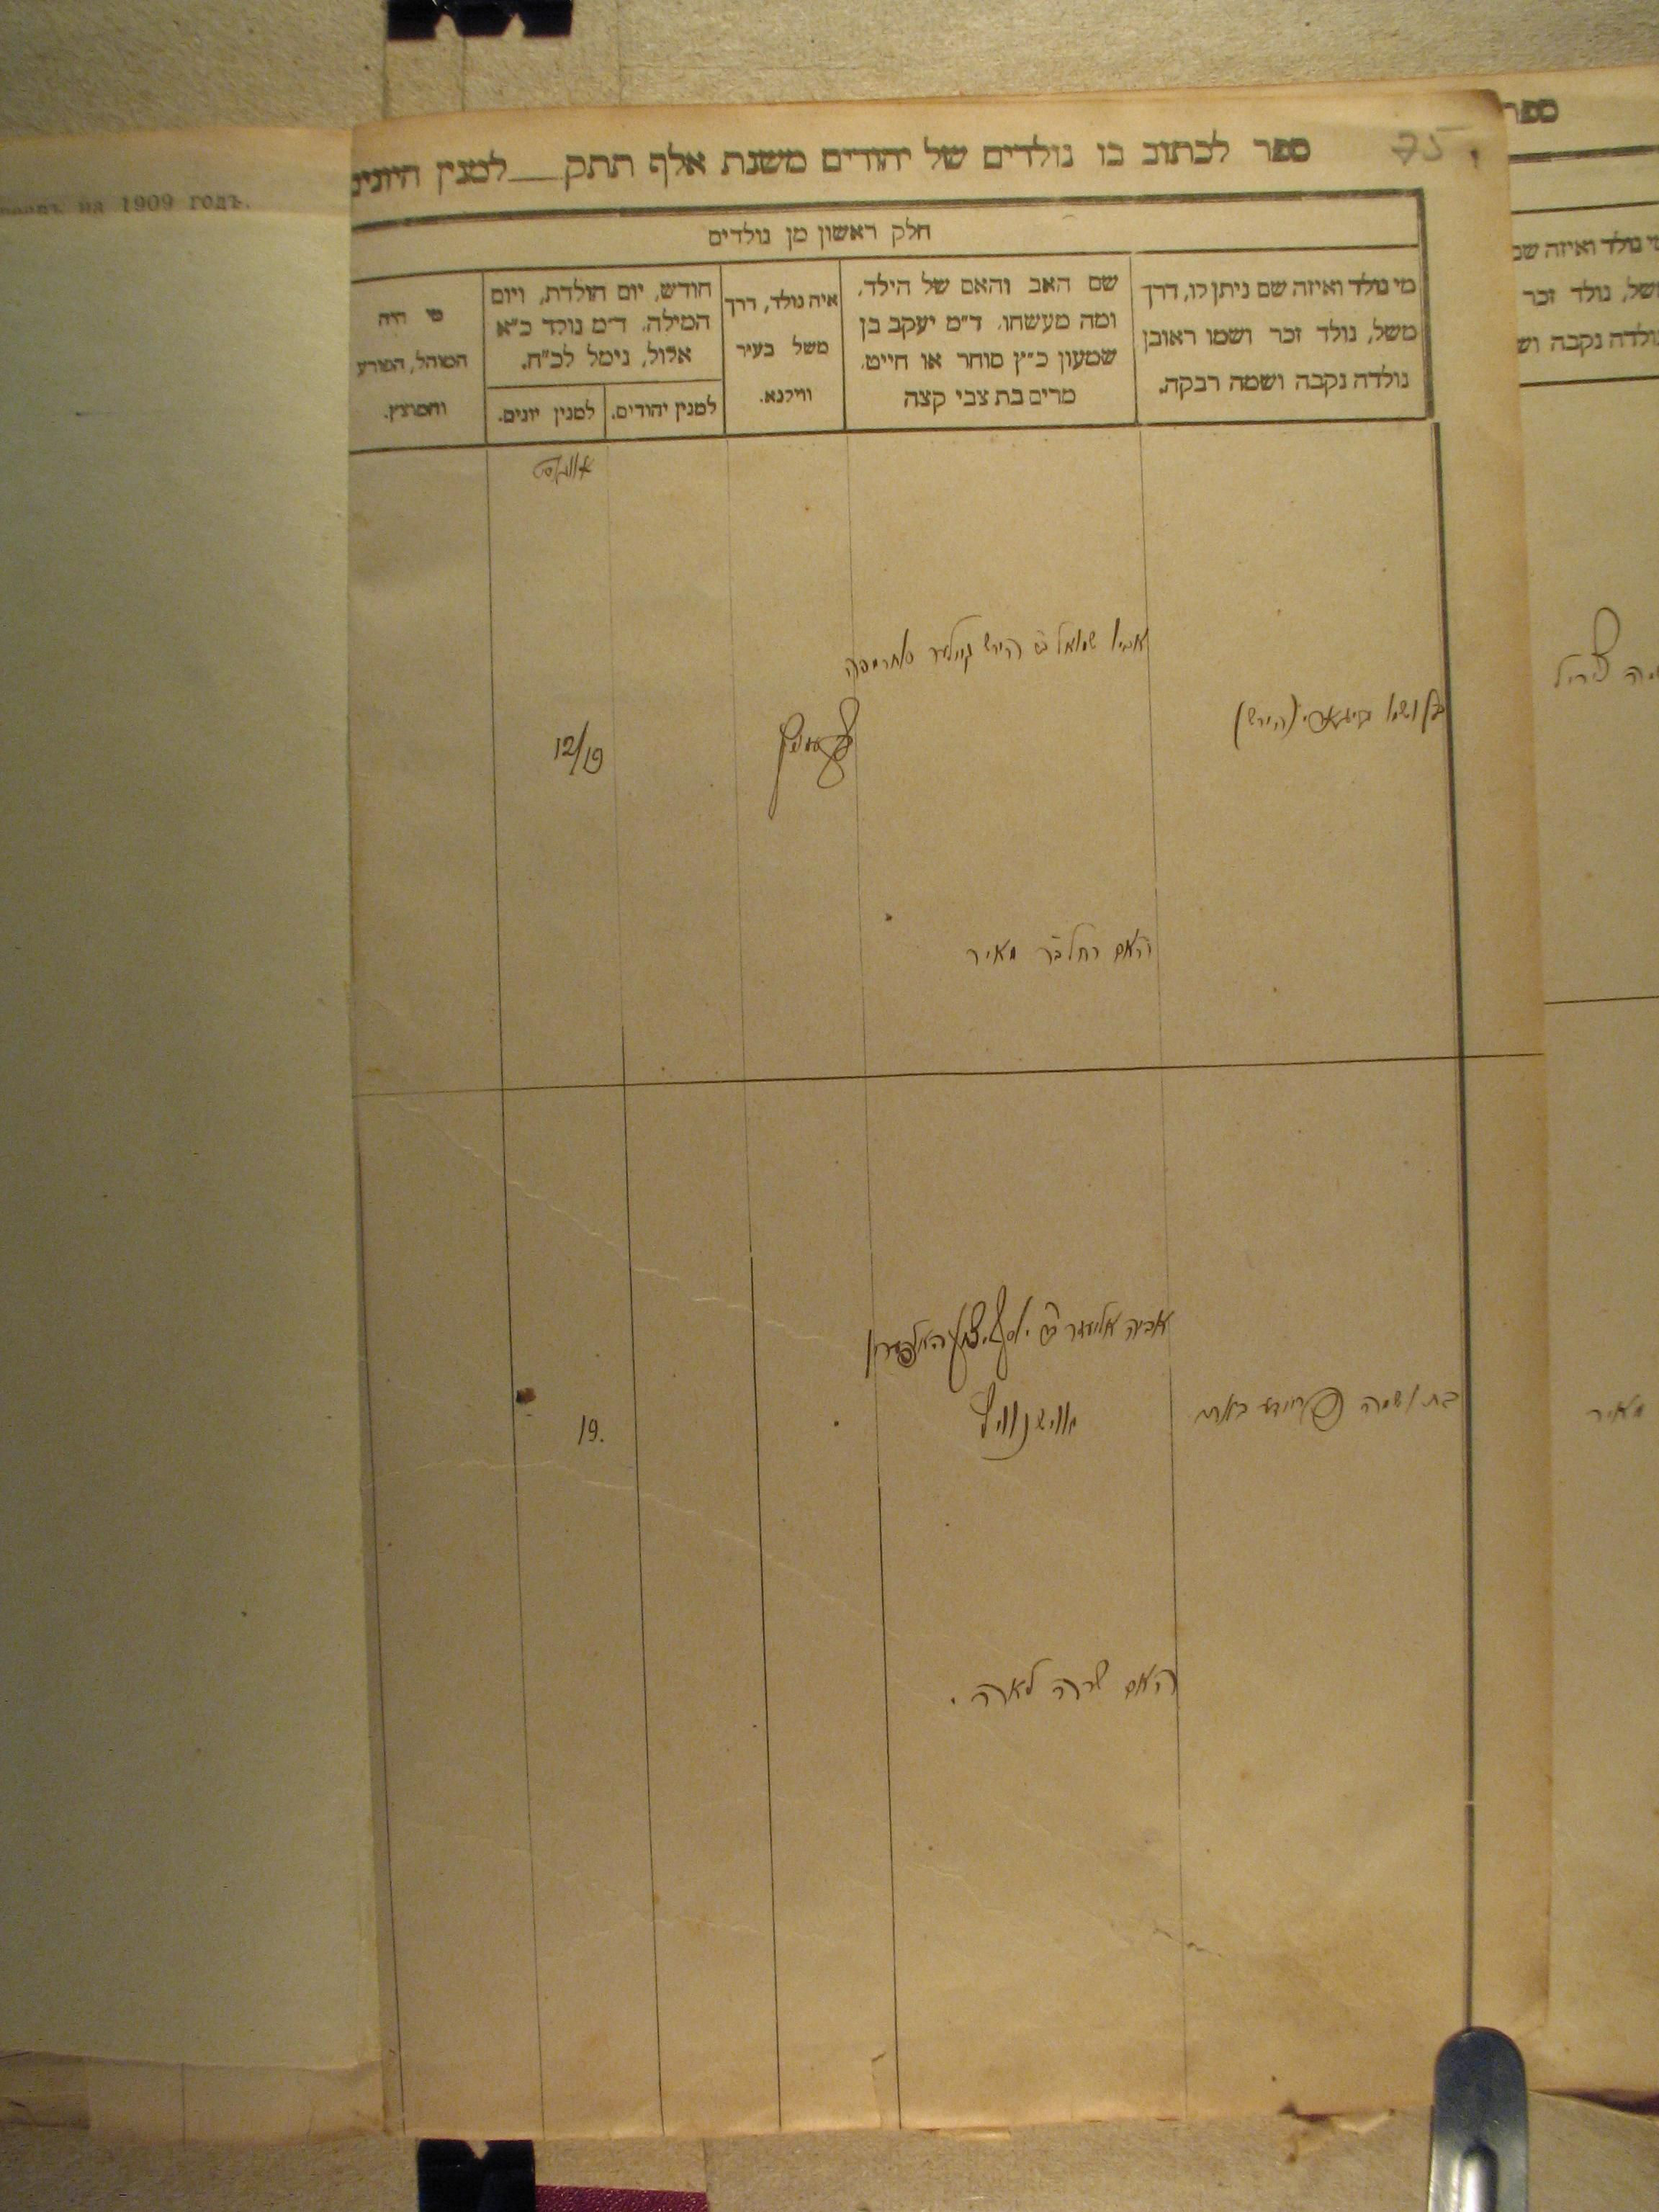 75
ספר לכתוב בו נולדים של יהודים משנת אלף תתק__למנין היונים
חלק ראשון מן נולדים
מי נולד ואיזה שם ניתן לו, דרך
משל, נולד זכר ושמו ראובן
נולדה נקבה ושמה רבקה.
שם האב והאם של הילד,
ומה מעשהו. ד״מ יעקב בן
שמעון כ״ץ סוחר או חייט.
מרים בת צבי קצה
איה נולד, דרך
משל בעיר
ווילנא.
חודש, יום הולדת, ויום
המילה. ד״מ נולד כ״א
אלול, נימל לכ״ח.
למנין יהודים.
למנין יונים.
מי היה
המוהל, הפורע
והמוצץ.
אויגוסט
בן ושמו (הירש)
אביו שמואל ב״ר הירש
האם רחל ב״ר מאיר
12/19
בת ושמה פריידע
אביה אליעזר ב״ר יוסף יצחק האלפערין
האם שרה לאה.
19.
ספר
מי נולד ואיזה שם
משל, נולד זכר
נולדה נקבה וש
מאיר
на 1909 годъ.